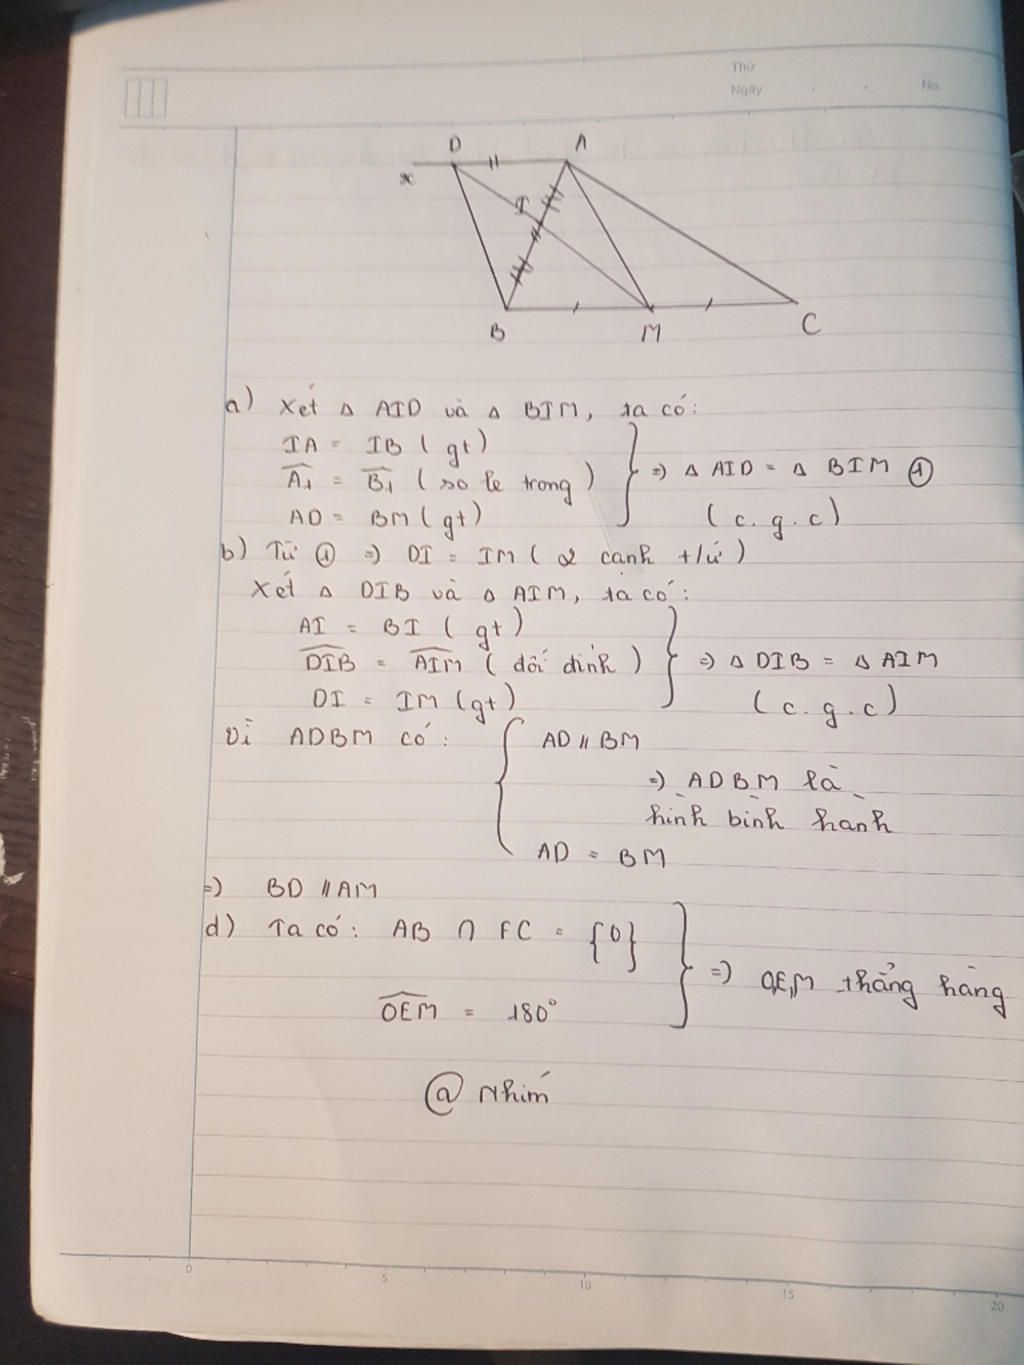 Thứ
Ngày No.
D A
x
I
B M C
a) Xét Δ AID và Δ BIM, ta có:
IA = IB (gt)
A₁ = B₁ (so le trong)
=> Δ AID = Δ BIM ①
AD = BM (gt)
(c.g.c)
b) Từ ① => DI = IM (2 cạnh t/ứ)
Xét Δ DIB và Δ AIM, ta có:
AI = BI (gt)
DIB = AIM (đối đỉnh) => Δ DIB = Δ AIM
DI = IM (gt) (c.g.c)
Vì ADBM có: AD // BM
=> ADBM là
hình bình hành
AD = BM
=> BD // AM
d) Ta có: AB ∩ FC = {O}
=> O,E,M thẳng hàng
OEM = 180°
@ Nhím
0 5 10 15 20